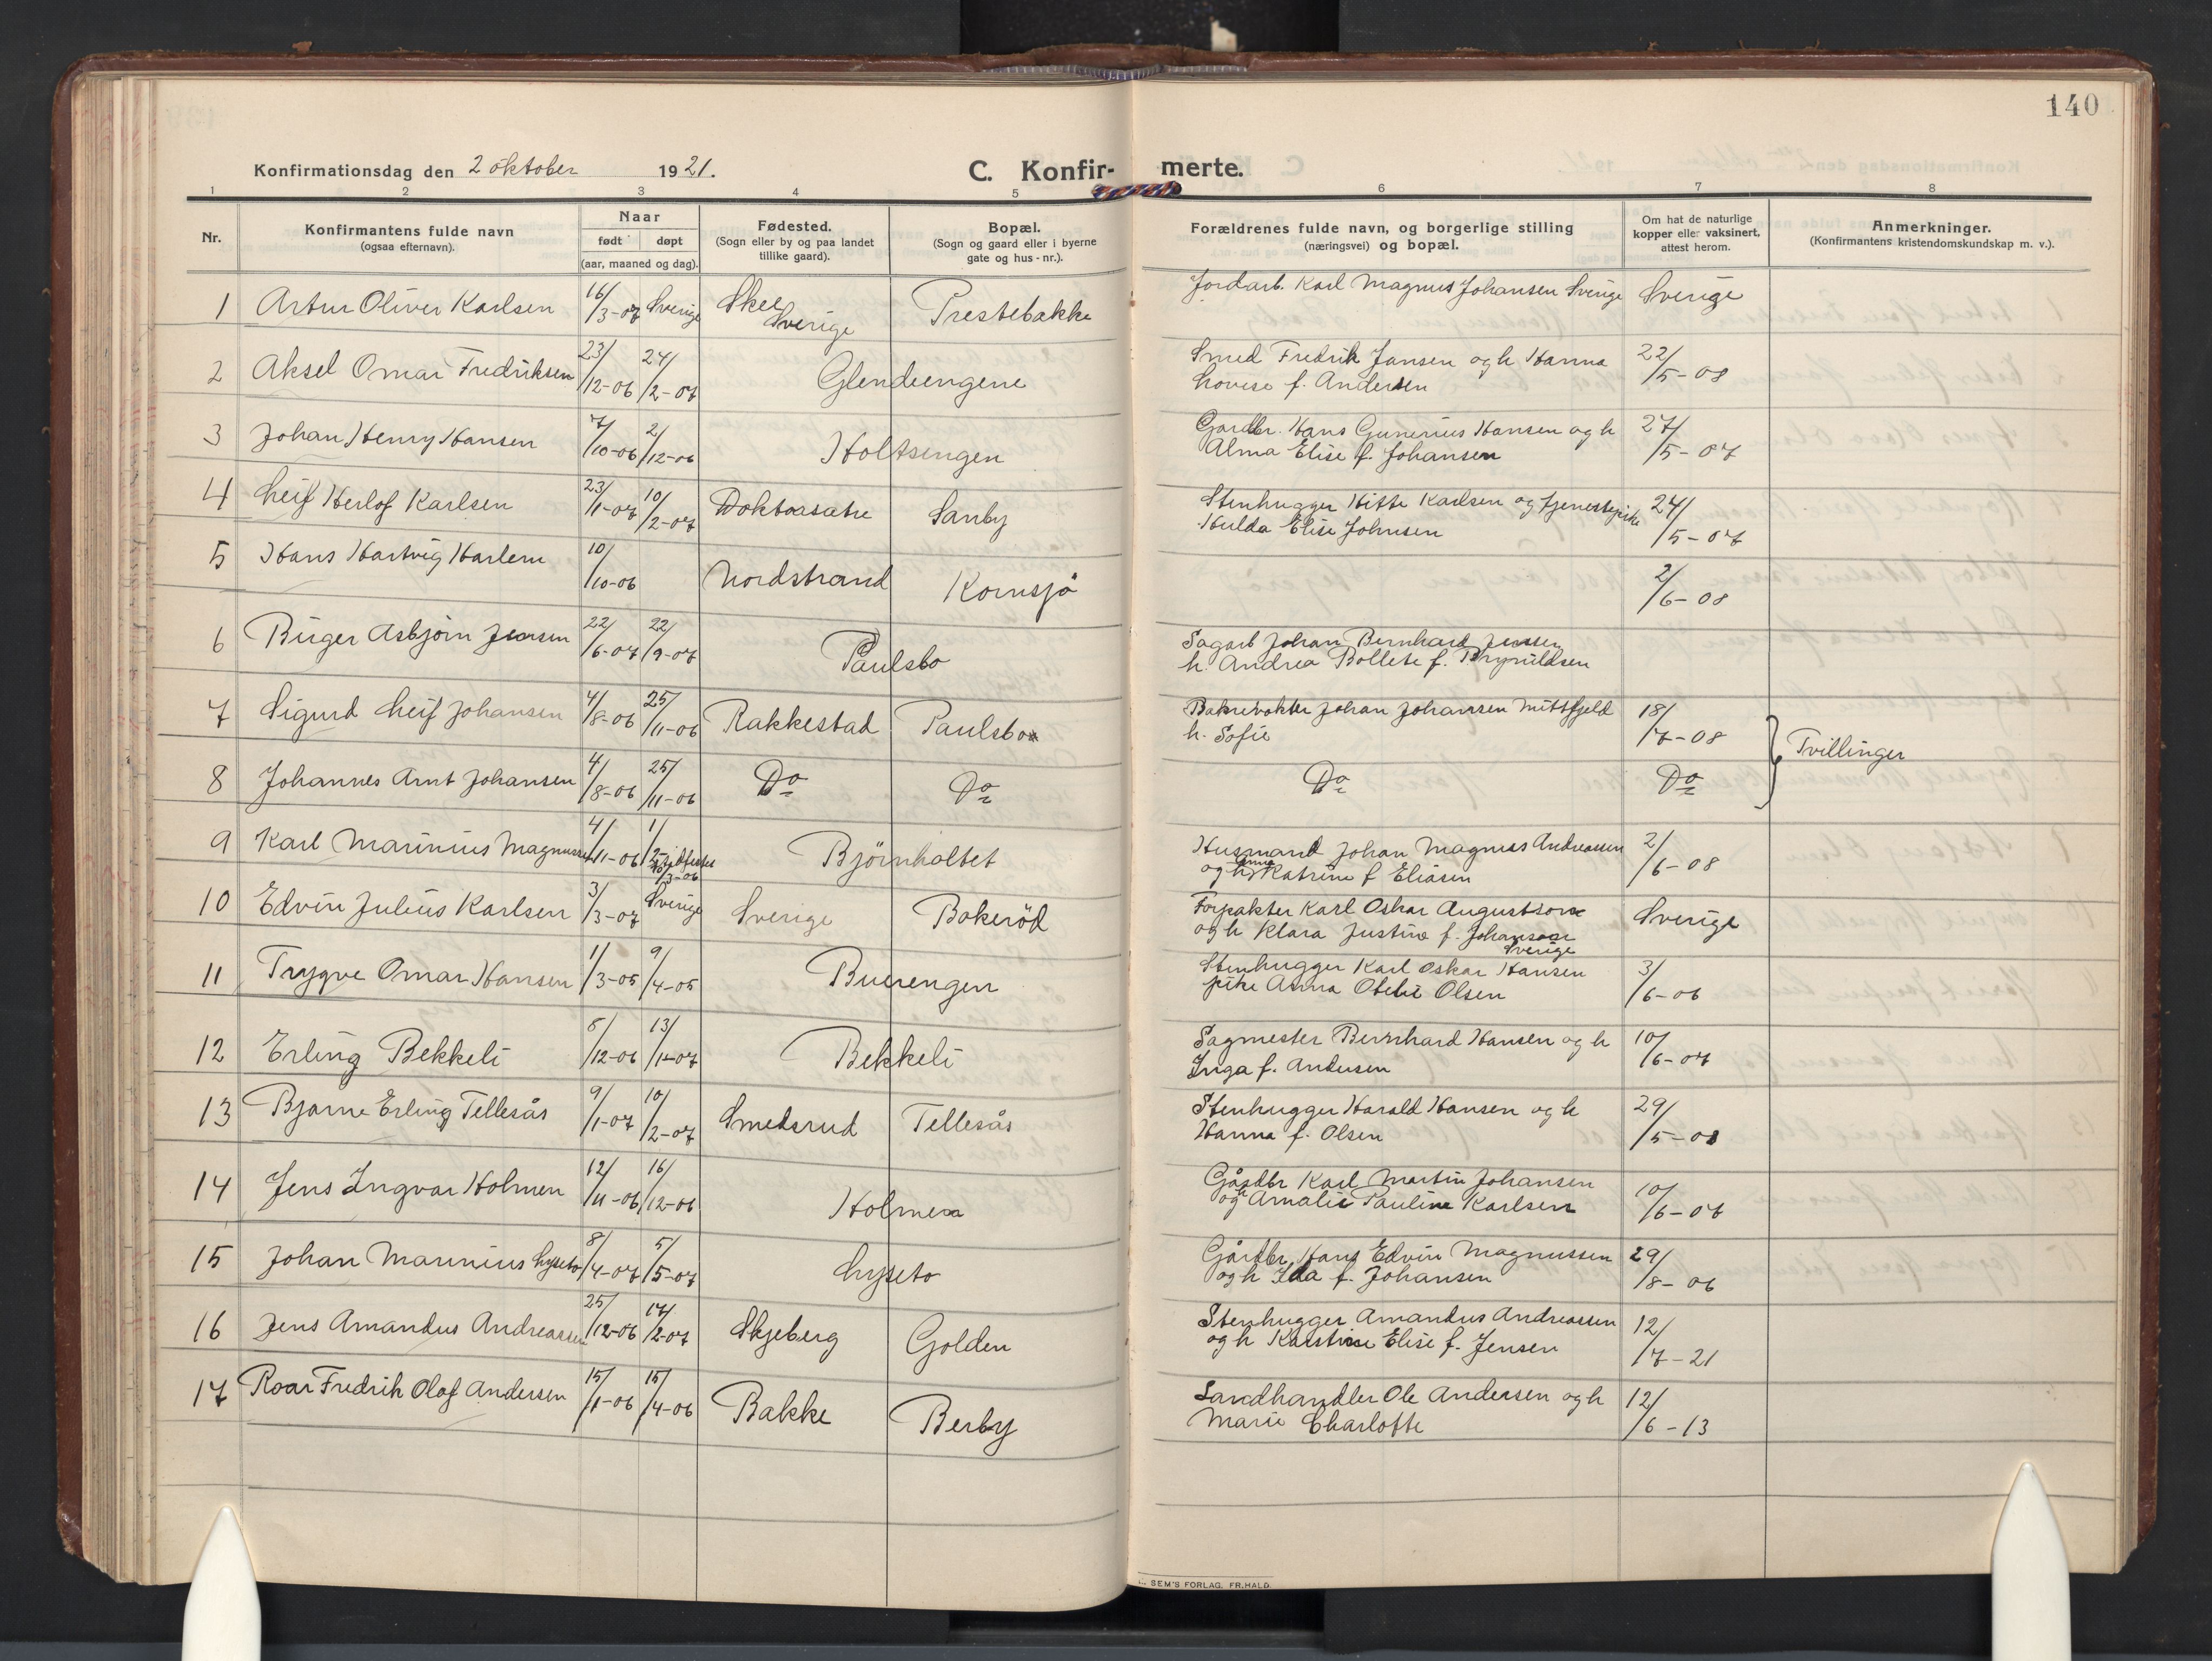 140
Konfirmationsdag den 2 oktober 1921. C. Konfir- merte.
1 2 3 4 5 6 7 8
Nr. Konfirmantens fulde navn (ogsaa efternavn). Naar født døpt (aar, maaned og dag). Fødested. (Sogn eller by og paa landet tillike gaard). Bopæl. (Sogn og gaard eller i byerne gate og hus-nr.). Forældrenes fulde navn, og borgerlige stilling (næringsvei) og bopæl. Om hat de naturlige kopper eller vaksinert, attest herom. Anmerkninger. (Konfirmantens kristendomskundskap m. v.).
1 Artur Oliver Karlsen 16/3-07 Sverige Skee Sverige Prestebakke Jordarb. Karl Magnus Johansen Sverige Sverige
2 Aksel Omar Fredriksen 23/12-06 24/2-07 Glendeengene Smed Fredrik Jansen og h Hanna
Lovise f. Andersen 22/5-08
3 Johan Henry Hansen 7/10-06 2/12-06 Holtsengen Gardbr. Hans Gunerius Hansen og h
Alma Elise f. Johansen 27/5-07
4 Leif Herlof Karlsen 23/1-07 10/2-07 Doktorsætre Sanby Stenhugger Hitte Karlsen og tjenestepike
Hulda Elise Johnsen 24/5-07
5 Hans Hartvig Harlem 10/10-06 Nordstrand Kornsjø 2/6-08
6 Birger Asbjørn Jensen 22/6-07 22/9-07 Paulsbo Sagarb Johan Bernhard Jensen
h. Andrea Bollete f. Brynildsen
7 Sigurd Leif Johansen 4/8-06 25/11-06 Rakkestad Paulsbo Banevokter Johan Johansen Mittfjeld
h. Sofie 18/7-08
Tvillinger
8 Johannes Arnt Johansen 4/8-06 25/11-06 Do Do Do Do
9 Karl Marinius Magnussen 4/11-06 1/2- 10/3-06 Bjørnholtet Husmand Johan Magnus Andreassen
og h Anna Katrine f Eliasen 2/6-08
10 Edvin Julius Karlsen 3/3-07 Sverige Sverige Bokerød Forpakter Karl Oskar Augustson
og h Klara Justine f. Johanson
Sverige Sverige
11 Trygve Omar Hansen 1/3-05 9/4-05 Buerengen Stenhugger Karl Oskar Hansen
pike Anna Otelie Olsen 3/6-06
12 Erling Bekkeli 5/12-06 13/1-07 Bekkeli Sagmester Bernhard Hansen og h
Inga f. Andersen 10/6-07
13 Bjarne Erling Tellesås 9/1-07 10/2-07 Smedsrud Tellesås Stenhugger Harald Hansen og h
Hanna f. Olsen 29/5-08
14 Jens Ingvar Holmen 12/11-06 16/12-06 Holmen Gårdbr Karl Martin Johansen
og h Amalie Pauline Karlsen 10/6-07
15 Johan Marinius Lyseto 8/4-07 5/5-07 Lyseto Gårdbr. Hans Edvin Magnussen
og h Ida f. Johansen 29/8-06
16 Jens Amandus Andreassen 25/12-06 17/2-07 Skjeberg Golden Stenhugger Amandus Andreassen
og h Karstine Elise f. Jensen 12/7-21
17 Roar Fredrik Olaf Andersen 15/1-06 15/4-06 Bakke Berby Landhandler Ole Andersen og h
Marie Charlotte 12/6-13
SEM'S FORLAG, FR.HALD